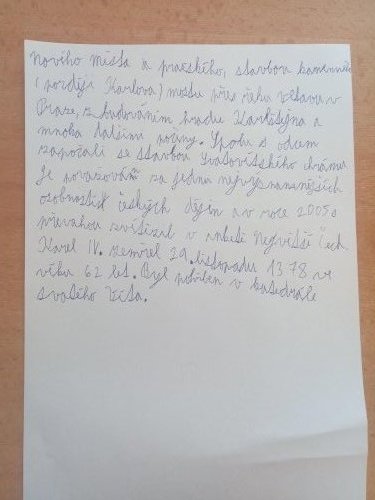 nového města a pražského, stavbou kamenného
(později Karlova) mostu přes řeku Vltavu v
Praze, z budováním hradu Karlštejna a
mnoha dalšími počiny. Spolu s otcem
započali se stavbou Svatovítského chrámu
Je považován za jednu nejvýznamnějších
osobností českých dějin a v roce 2005 s
převahou zvítězil v anketě Největší Čech
Karel IV. zemřel 29. listopadu 1378 ve
věku 62 let. Byl pohřben v katedrále
svatého Víta.